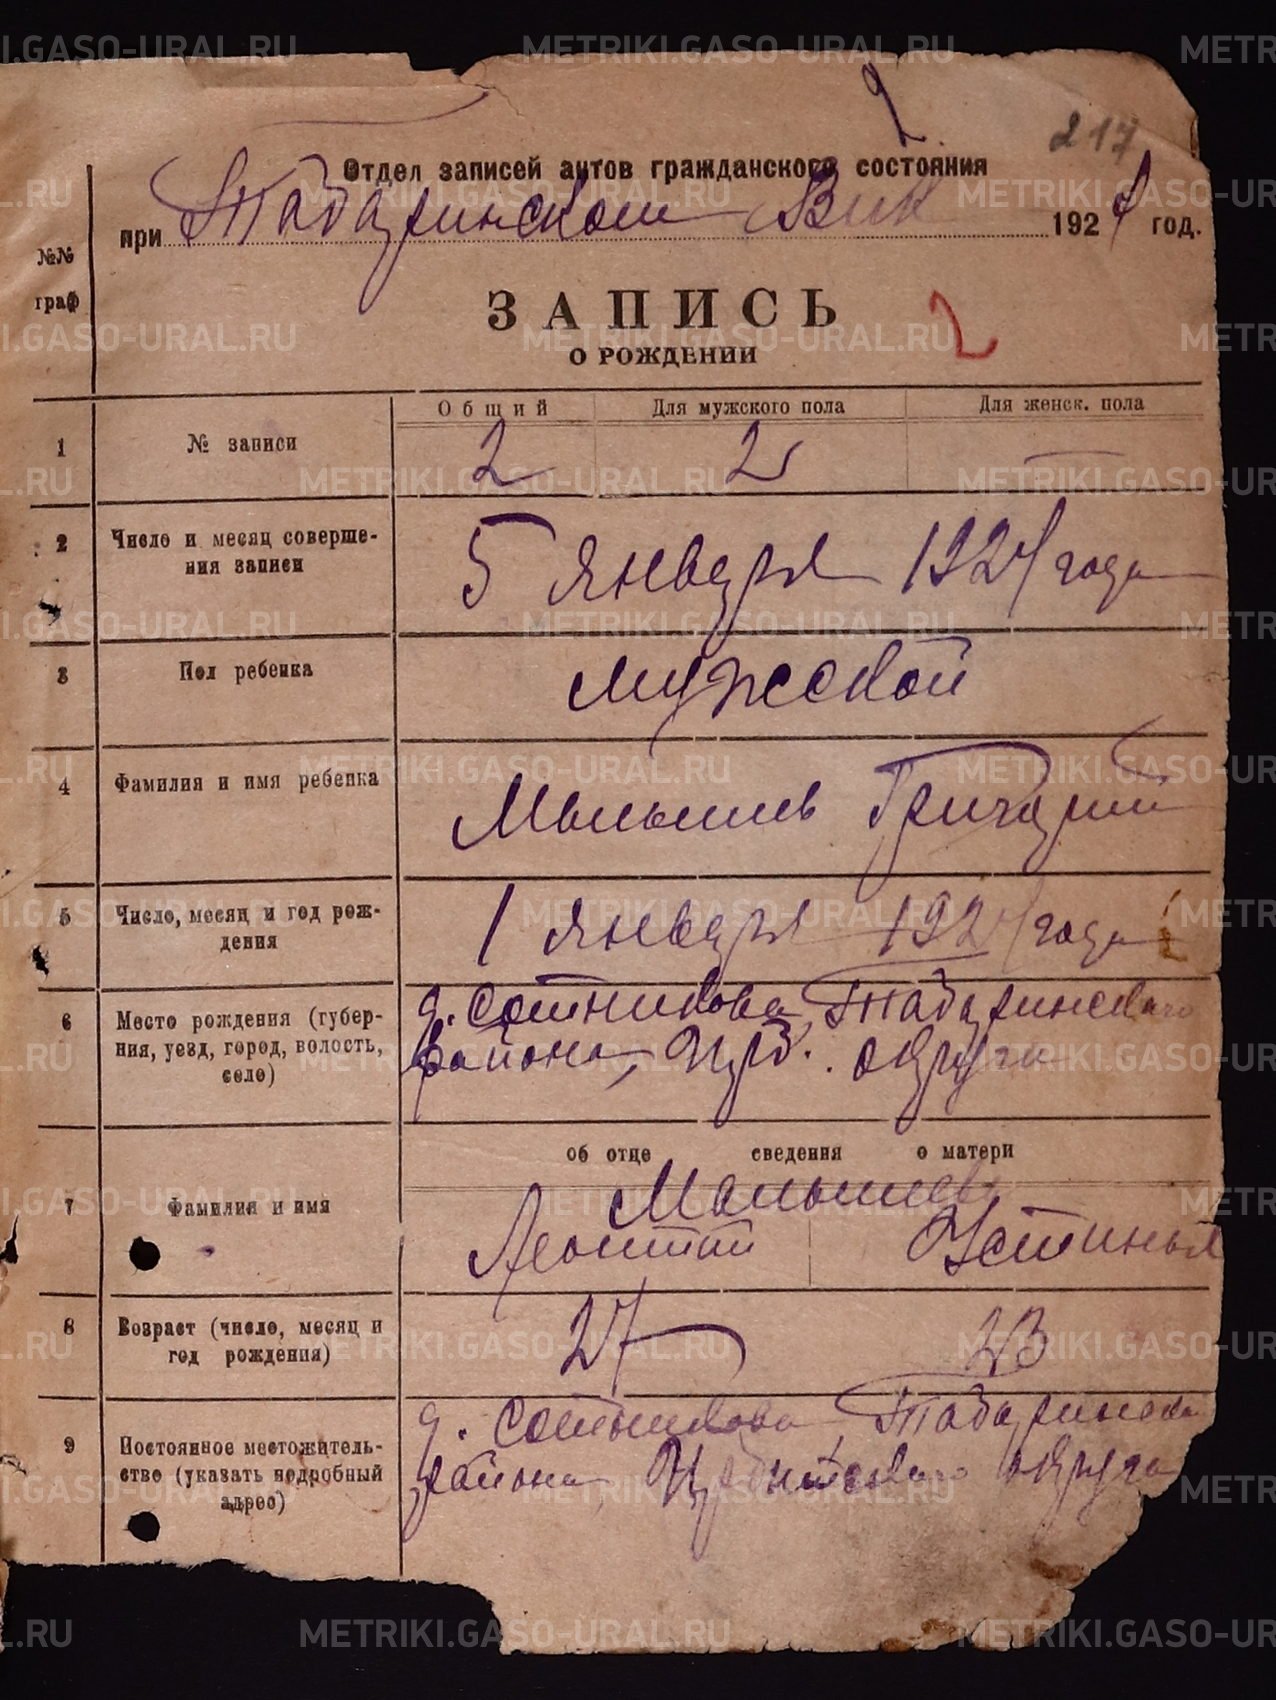 2
217
Отдел записей актов гражданского состояния
при Табаринском Вик 1924 год.
№№
граф
ЗАПИСЬ
2
О РОЖДЕНИИ
Общий Для мужского пола Для женск. пола
1 № записи 2 2 —
2 Число и месяц соверше-
ния записи 5 января 1924 года
3 Пол ребенка мужской
4 Фамилия и имя ребенка Малышев Григорий
5 Число, месяц и год рож-
дения 1 января 1924 года
6 Место рождения (губер-
ния, уезд, город, волость,
село) д. Сотникова, Табаринского
района, Ирб. округа
об отце сведения о матери
7 Фамилия и имя Малышев
Леонтий Устинья
8 Возраст (число, месяц и
год рождения) 27 23
9 Постоянное местожитель-
ство (указать подробный
адрес) д. Сотникова, Табаринска
района, Ирбитского округа
METRIKI.GASO-URAL.RU